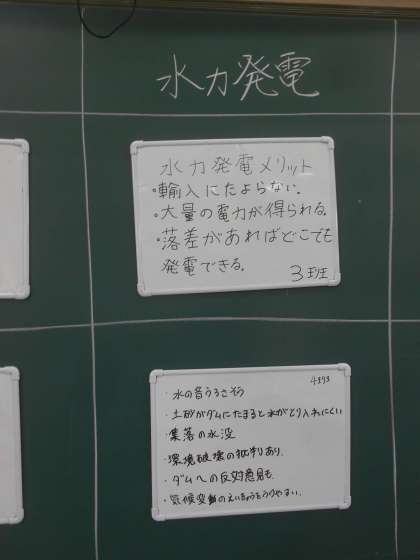 水力発電
水力発電メリット
・輸入にたよらない.
・大量の電力が得られる.
・落差があればどこでも
発電できる.
3班
4班
・水の音うるさそう
・土砂がダムにたまると水がとり入れにくい
・集落の水没
・環境破壊の批判あり.
・ダムへの反対意見も.
・気候変動のえいきょうもうけやすい.